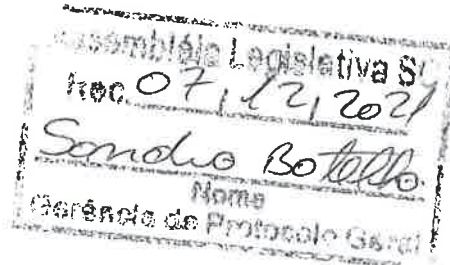 Assembléia Legislativa S
Rec. 07, 12, 2021
Sandro Botelho
Nome
Gerência de Protocolo Geral